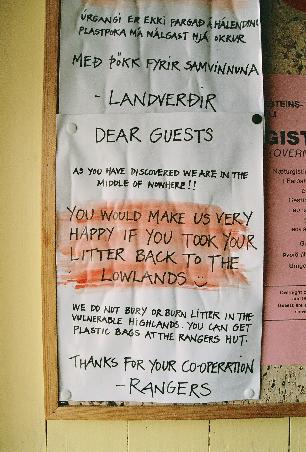 ÚRGANGI ER EKKI FARGAÐ Á HÁLENDINU
PLASTPOKA MÁ NÁLGAST HJÁ OKKUR
MEÐ ÞÖKK FYRIR SAMVINNUNA
- LANDVERÐIR
DEAR GUESTS
AS YOU HAVE DISCOVERED WE ARE IN THE
MIDDLE OF NOWHERE!!
YOU WOULD MAKE US VERY
HAPPY IF YOU TOOK YOUR
LITTER BACK TO THE
LOWLANDS
WE DO NOT BURY OR BURN LITTER IN THE
VULNERABLE HIGHLANDS. YOU CAN GET
PLASTIC BAGS AT THE RANGERS HUT.
THANKS FOR YOUR CO-OPERATION
- RANGERS